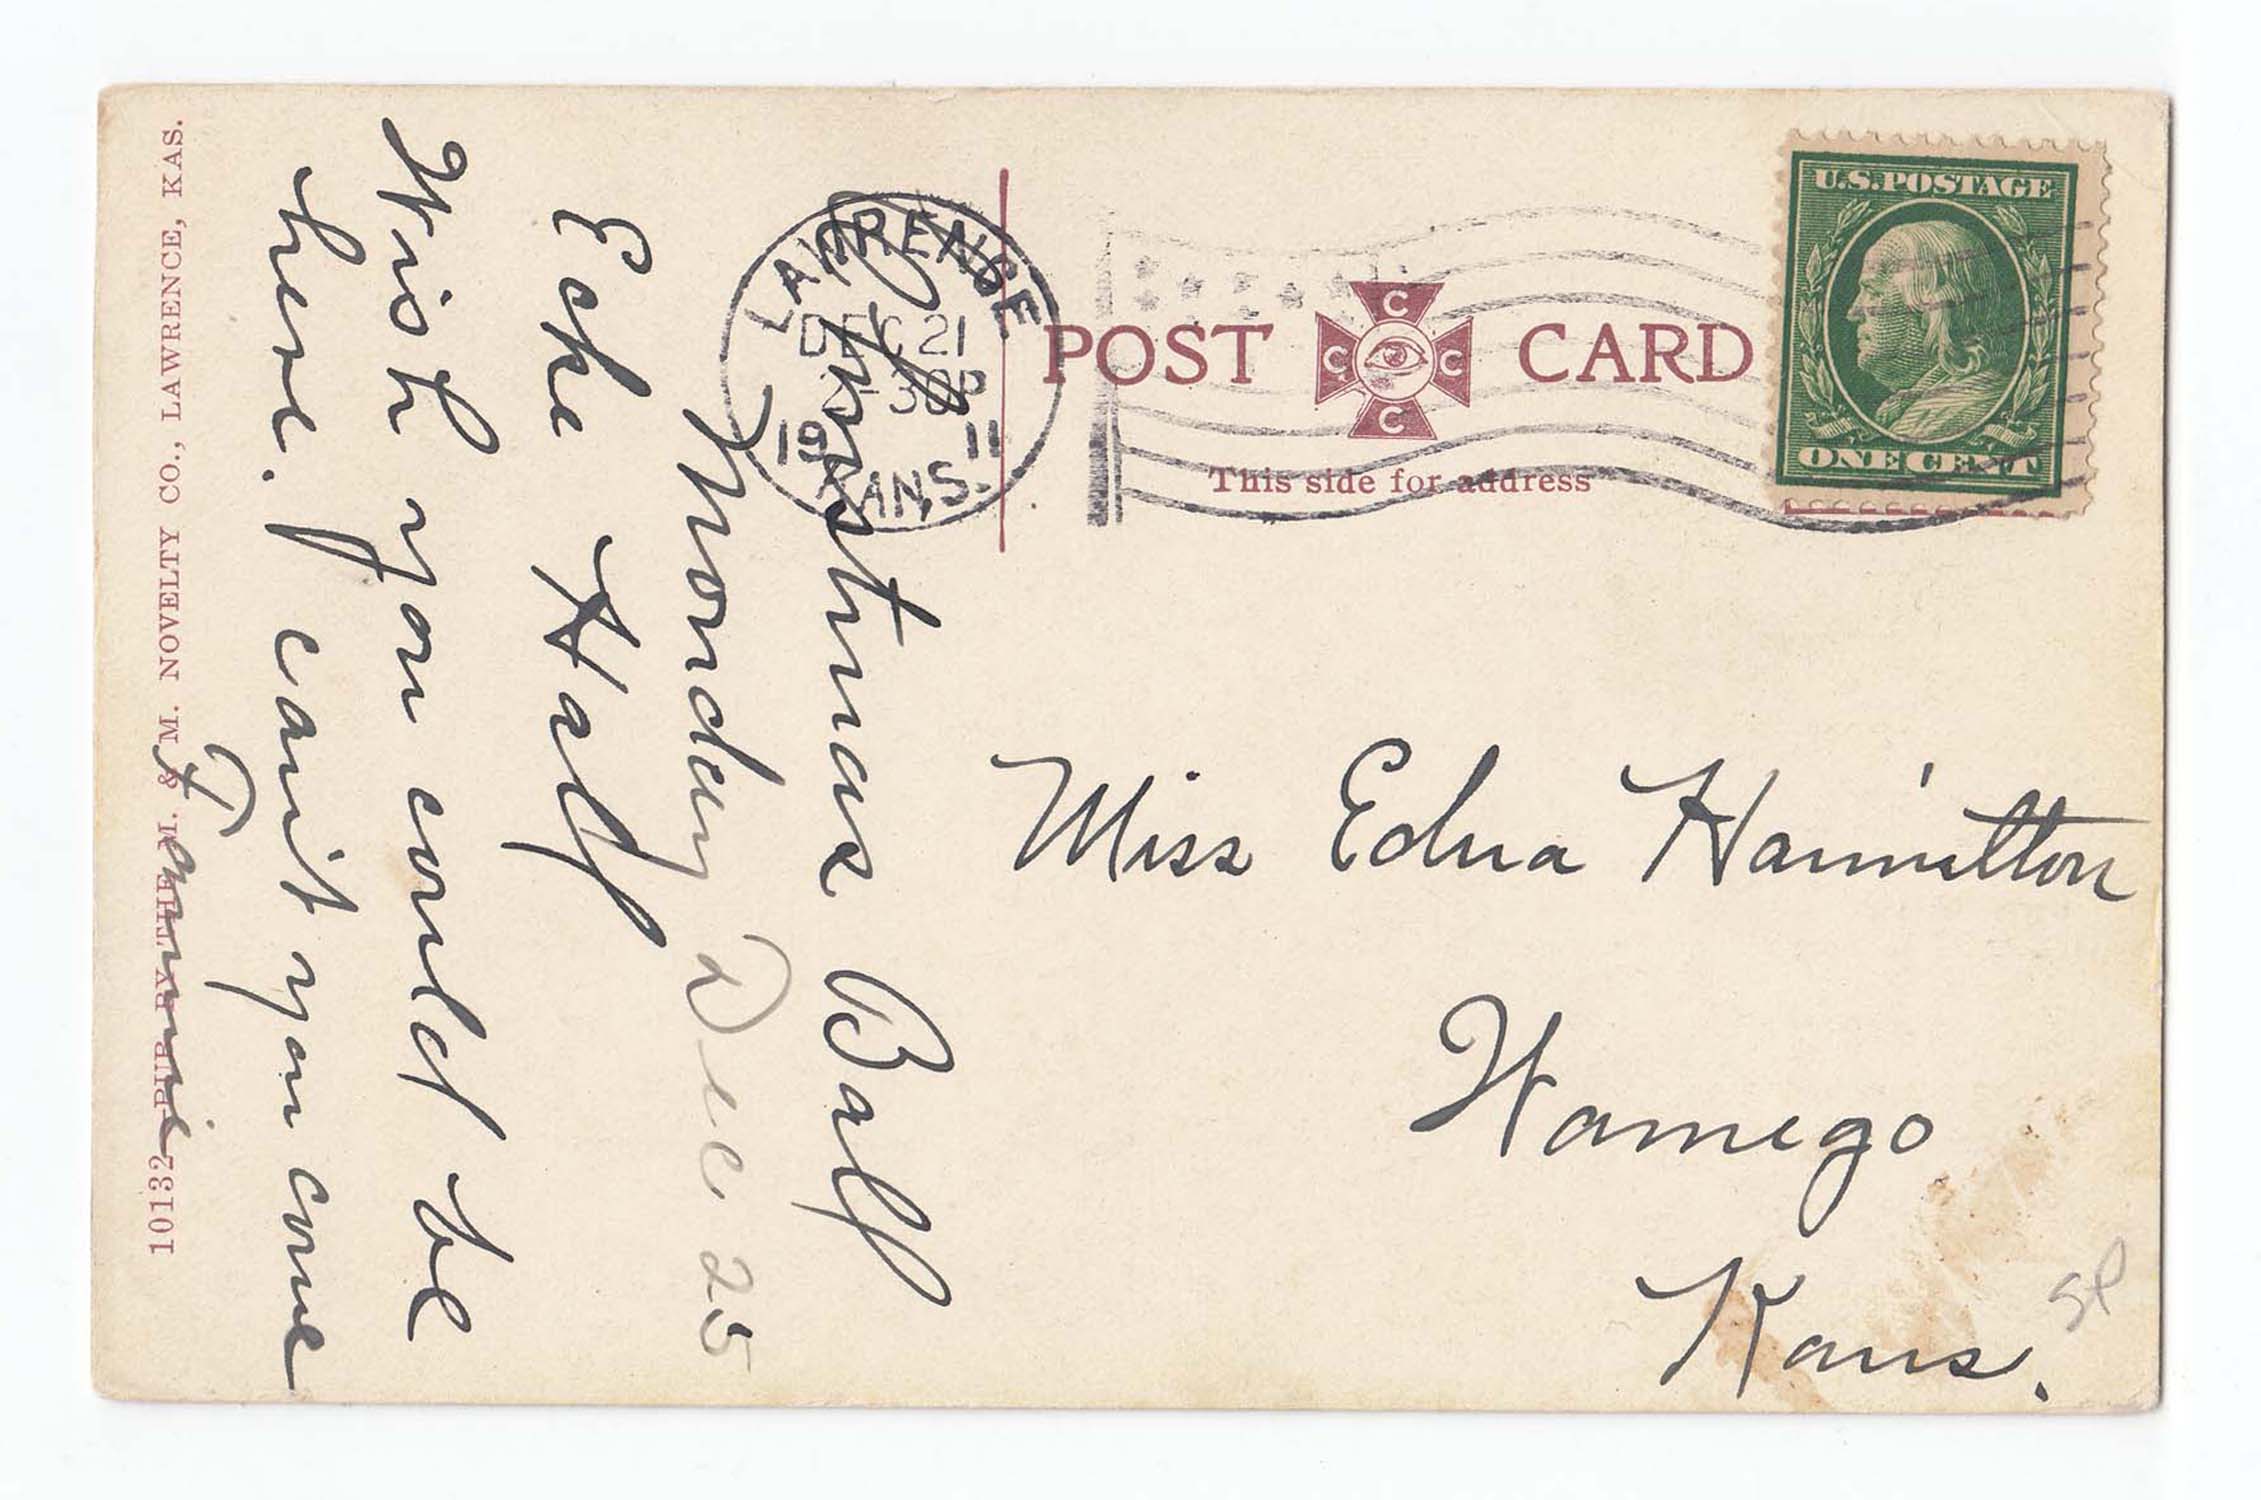 Christmas Ball
Monday Dec 25
Eske Hall
Wish you could be
here. can't you come
Fannie
10132 PUB. BY THE M. & M. NOVELTY CO., LAWRENCE, KAS.
LAWRENCE
DEC 21
30P
19 11
KANS.
POST CARD
C
C C
C
This side for address
U.S.POSTAGE
ONE CENT
Miss Edna Hamilton
Wamego
Kans.